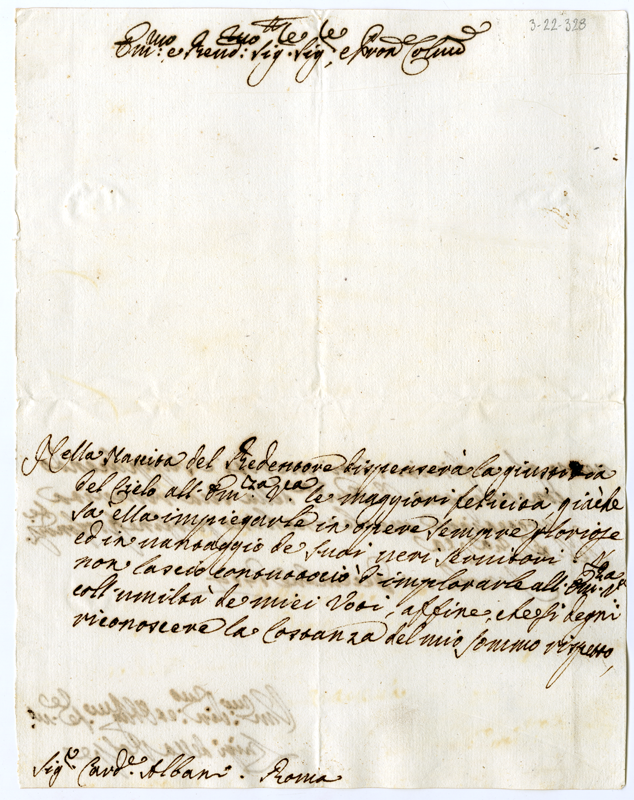 3-22-328
Em.mo e Rev.mo Sig.r Sig.r, e Pron Colmo
Nella Nascita del Redentore dispenserà la giustizia
del Cielo all'Em.za V.ra le maggiori felicità, giàche
sa ella impiegarle in opere sempre gloriose
ed in vantaggio de Suoi veri Servitori
non lascio contuttociò d'implorarle all'Em.za V.ra
coll'umiltà de miei Voti, affine, che si degni
riconoscere la Costanza del mio sommo rispetto,
Sig.r Card.le Albani. Roma